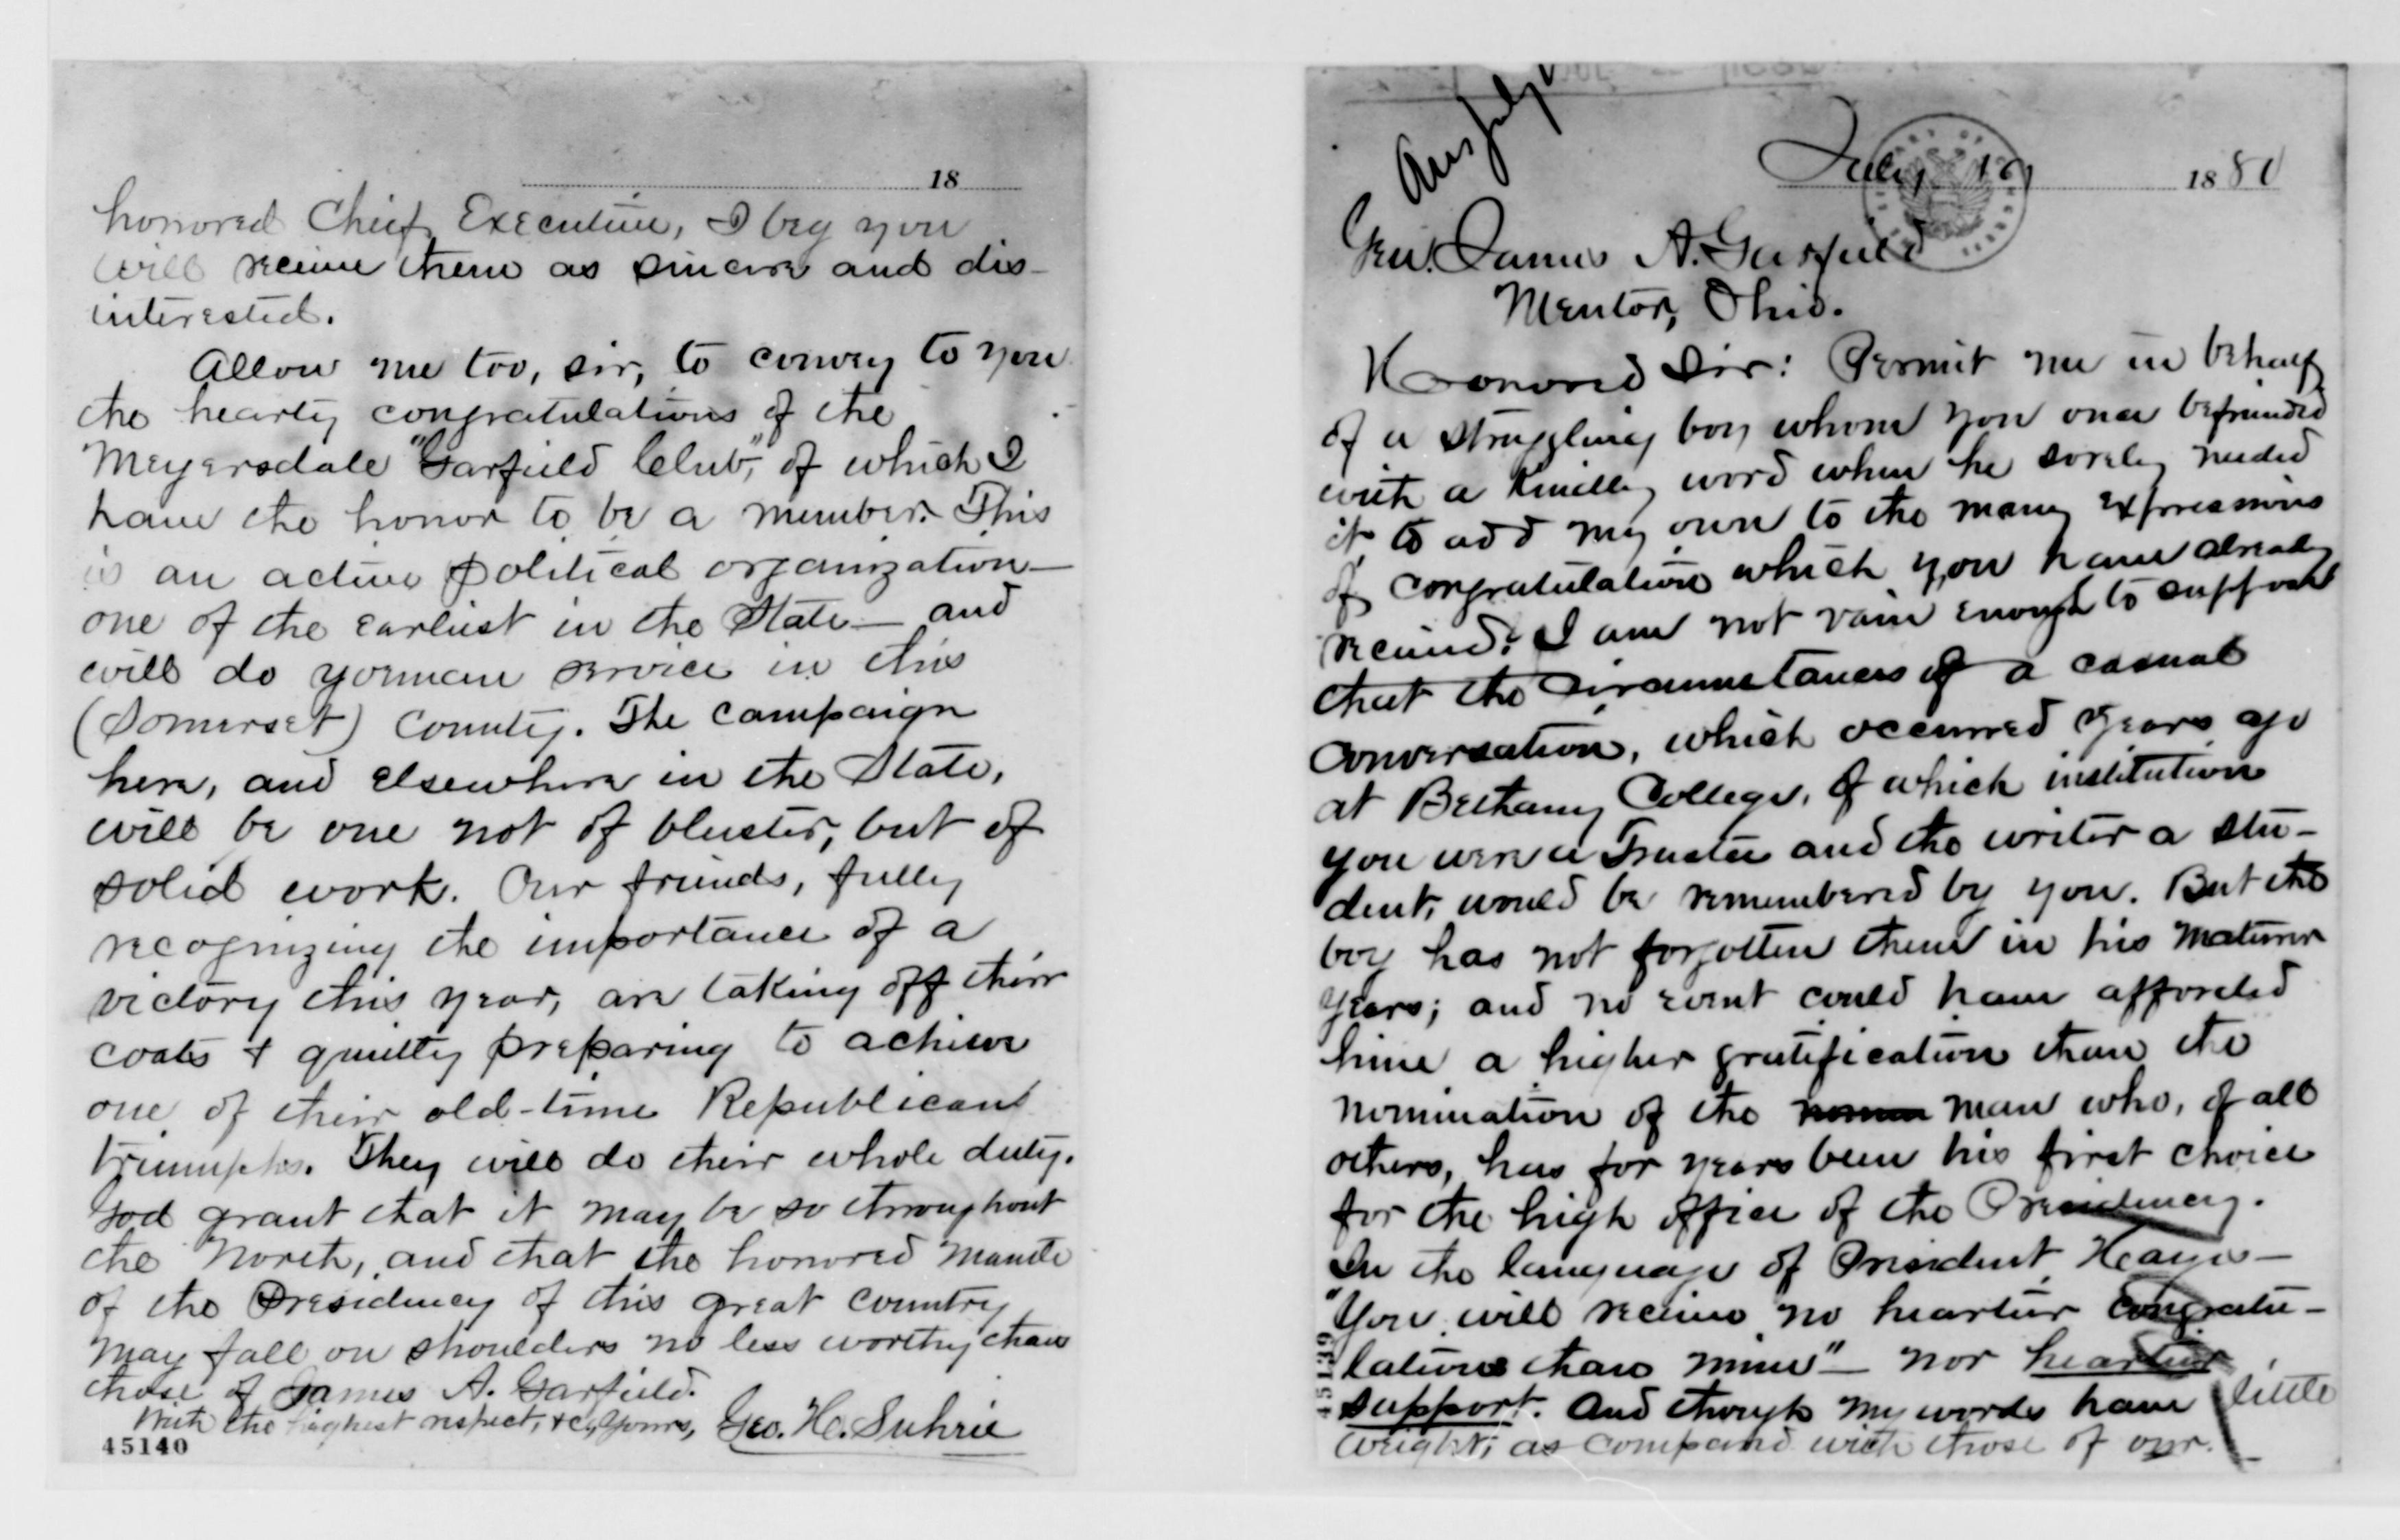 July 19 1880
Gen. James A. Garfield
Mentor, Ohio.
Honored Sir: Permit me in behalf
of a struggling boy whom you once befriended
with a kindly word when he sorely needed
it, to add my own to the many expressions
of congratulation which you have already
received. I am not vain enough to suppose
that the circumstances of a casual
conversation, which occurred years ago
at Bethany College, of which institution
you were a Trustee and the writer a stu-
dent, would be remembered by you. But the
boy has not forgotten them in his maturer
years; and no event could have afforded
him a higher gratification than the
nomination of the man who, of all
others, has for years been his first choice
for the high office of the Presidency.
In the language of President Hayes—
"You will receive no heartier congratu-
lations than mine"— nor heartier
support. And though my words have little
weight, as compared with those of our
45139
18
honored Chief Executive, I beg you
will receive them as sincere and dis-
interested.
Allow me too, sir, to convey to you
the hearty congratulations of the
Meyersdale "Garfield Club," of which I
have the honor to be a member. This
is an active political organization—
one of the earliest in the State— and
will do yoeman service in this
(Somerset) County. The campaign
here, and elsewhere in the State,
will be one not of bluster, but of
solid work. Our friends, fully
recognizing the importance of a
victory this year, are taking off their
coats & quietly preparing to achieve
one of their old-time Republican
triumphs. They will do their whole duty.
God grant that it may be so throughout
the North, and that the honored mantle
of the Presidency of this great country
may fall on shoulders no less worthy than
those of James A. Garfield.
With the highest respect, &c, Yours, Geo. H. Suhrie
45140